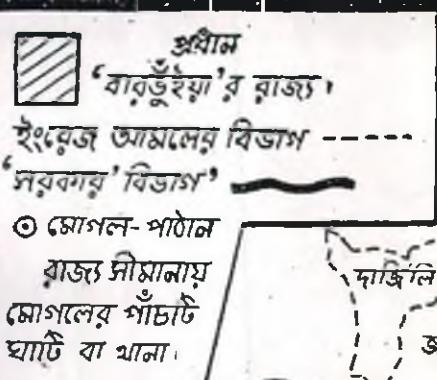 প্রধান
‘বারভুঁইয়া’র রাজ্য।
ইংরেজ আমলের বিভাগ
‘সরকার’ বিভাগ’
মোগল-পাঠান
রাজ্য সীমানায়
মোগলের পাঁচটি
ঘাটি বা থানা।
দার্জিলি
জ